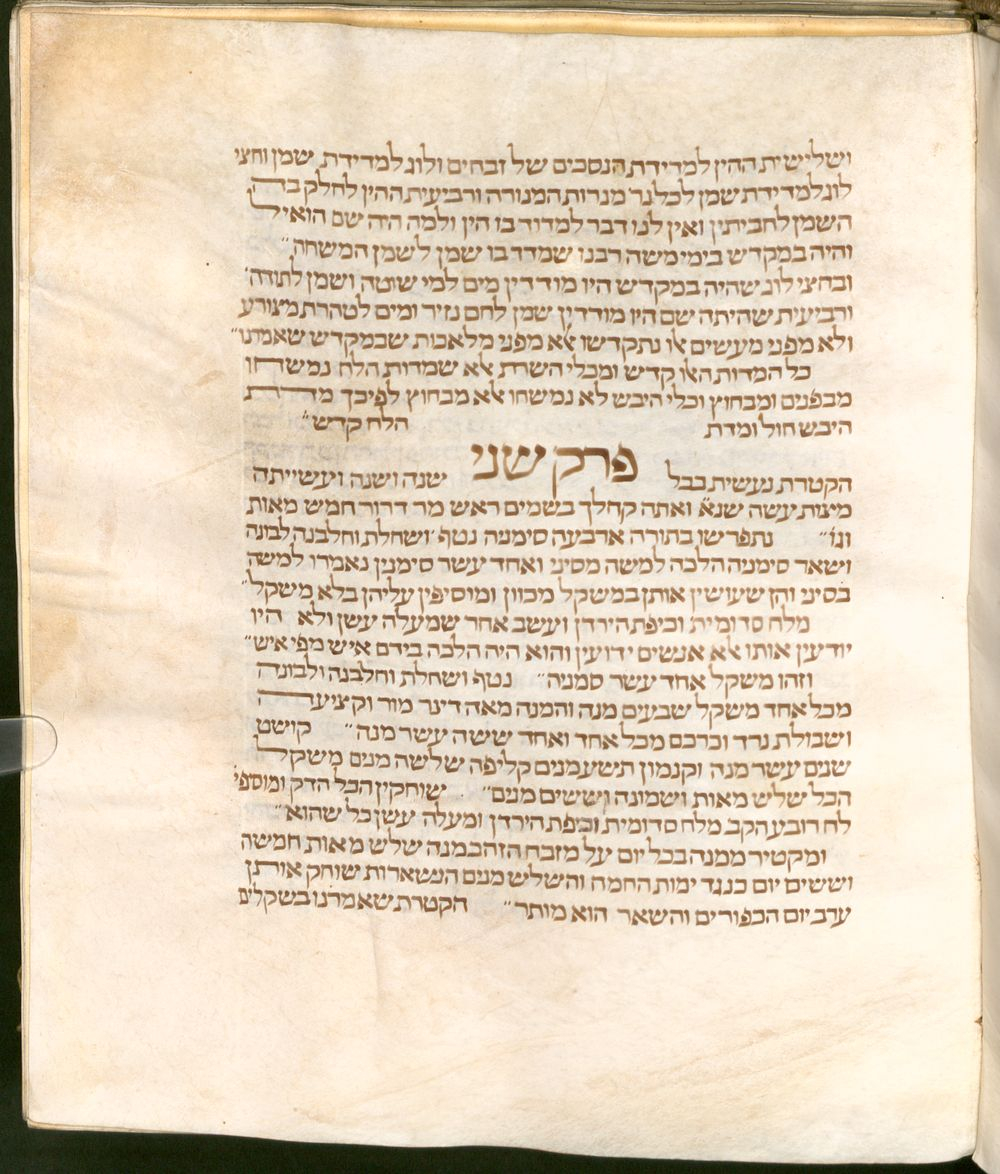 ושלישית ההין למדידת הנסכים של זבחים ולוג למדידת שמן וחצי
לוג למדידת שמן לכל נר מנרות המנורה ורביעית ההין לחלק בה
השמן לחביתין ואין לנו דבר למדוד בו הין ולמה היה שם הואיל
והיה במקדש בימי משה רבנו שמדד בו שמן לשמן המשחה״
ובחצי לוג שהיה במקדש היו מודדין מים למי שוטה ושמן לתודה
ורביעית שהיתה שם היו מודדין שמן לחם נזיר ומים לטהרת מצורע
ולא מפני מעשים אלו נתקדשו אלא מפני מלאכות שבמקדש שאמרנו״
כל המדות האלו קדש ומכלי השרת אלא שמדות הלח נמשחו
מבפנים ומבחוץ וכלי היבש לא נמשחו אלא מבחוץ לפיכך מדת
היבש חול ומדת הלח קדש״
פרק שני
הקטרת נעשית בכל שנה ושנה ועשייתה
מיצות עשה שנא׳ ואתה קח לך בשמים ראש מר דרור חמש מאות
וגו׳״ נתפרשו בתורה ארבעה סימניה נטף ושחלת וחלבנה לבונה
ושאר סימניה הלכה למשה מסיני ואחד עשר סימנין נאמרו למשה
בסיני והן שעושין אותן במשקל מכוון ומוסיפין עליהן בלא משקל״
מלח סדומית וכיפת הירדן ועשב אחר שמעלה עשן ולא היו
יודעין אותו אלא אנשים ידועין והוא היה הלכה בידם איש מפי איש״
וזהו משקל אחד עשר סמניה״ נטף ושחלת וחלבנה ולבונה
מכל אחד משקל שבעים מנה והמנה מאה דינר מור וקציעה
ושבולת נרד וכרכם מכל אחד ואחד ששה עשר מנה״ קושט
שנים עשר מנה וקנמון תשעה מנים קליפה שלשה מנים משקל
הכל שלש מאות ושמונה וששים מנים״ שוחקין הכל הדק ומוספי׳
לה רובע הקב מלח סדומית וכיפת הירדן ומעלה עשן כל שהוא״
ומקטיר ממנה בכל יום על מזבח הזהב מנה שלש מאות חמשה
וששים יום כנגד ימות החמה והשלש מנים הנשארות שוחק אותן
ערב יום הכפורים והשאר הוא מותר״ הקטרת שאמרנו בשקלים